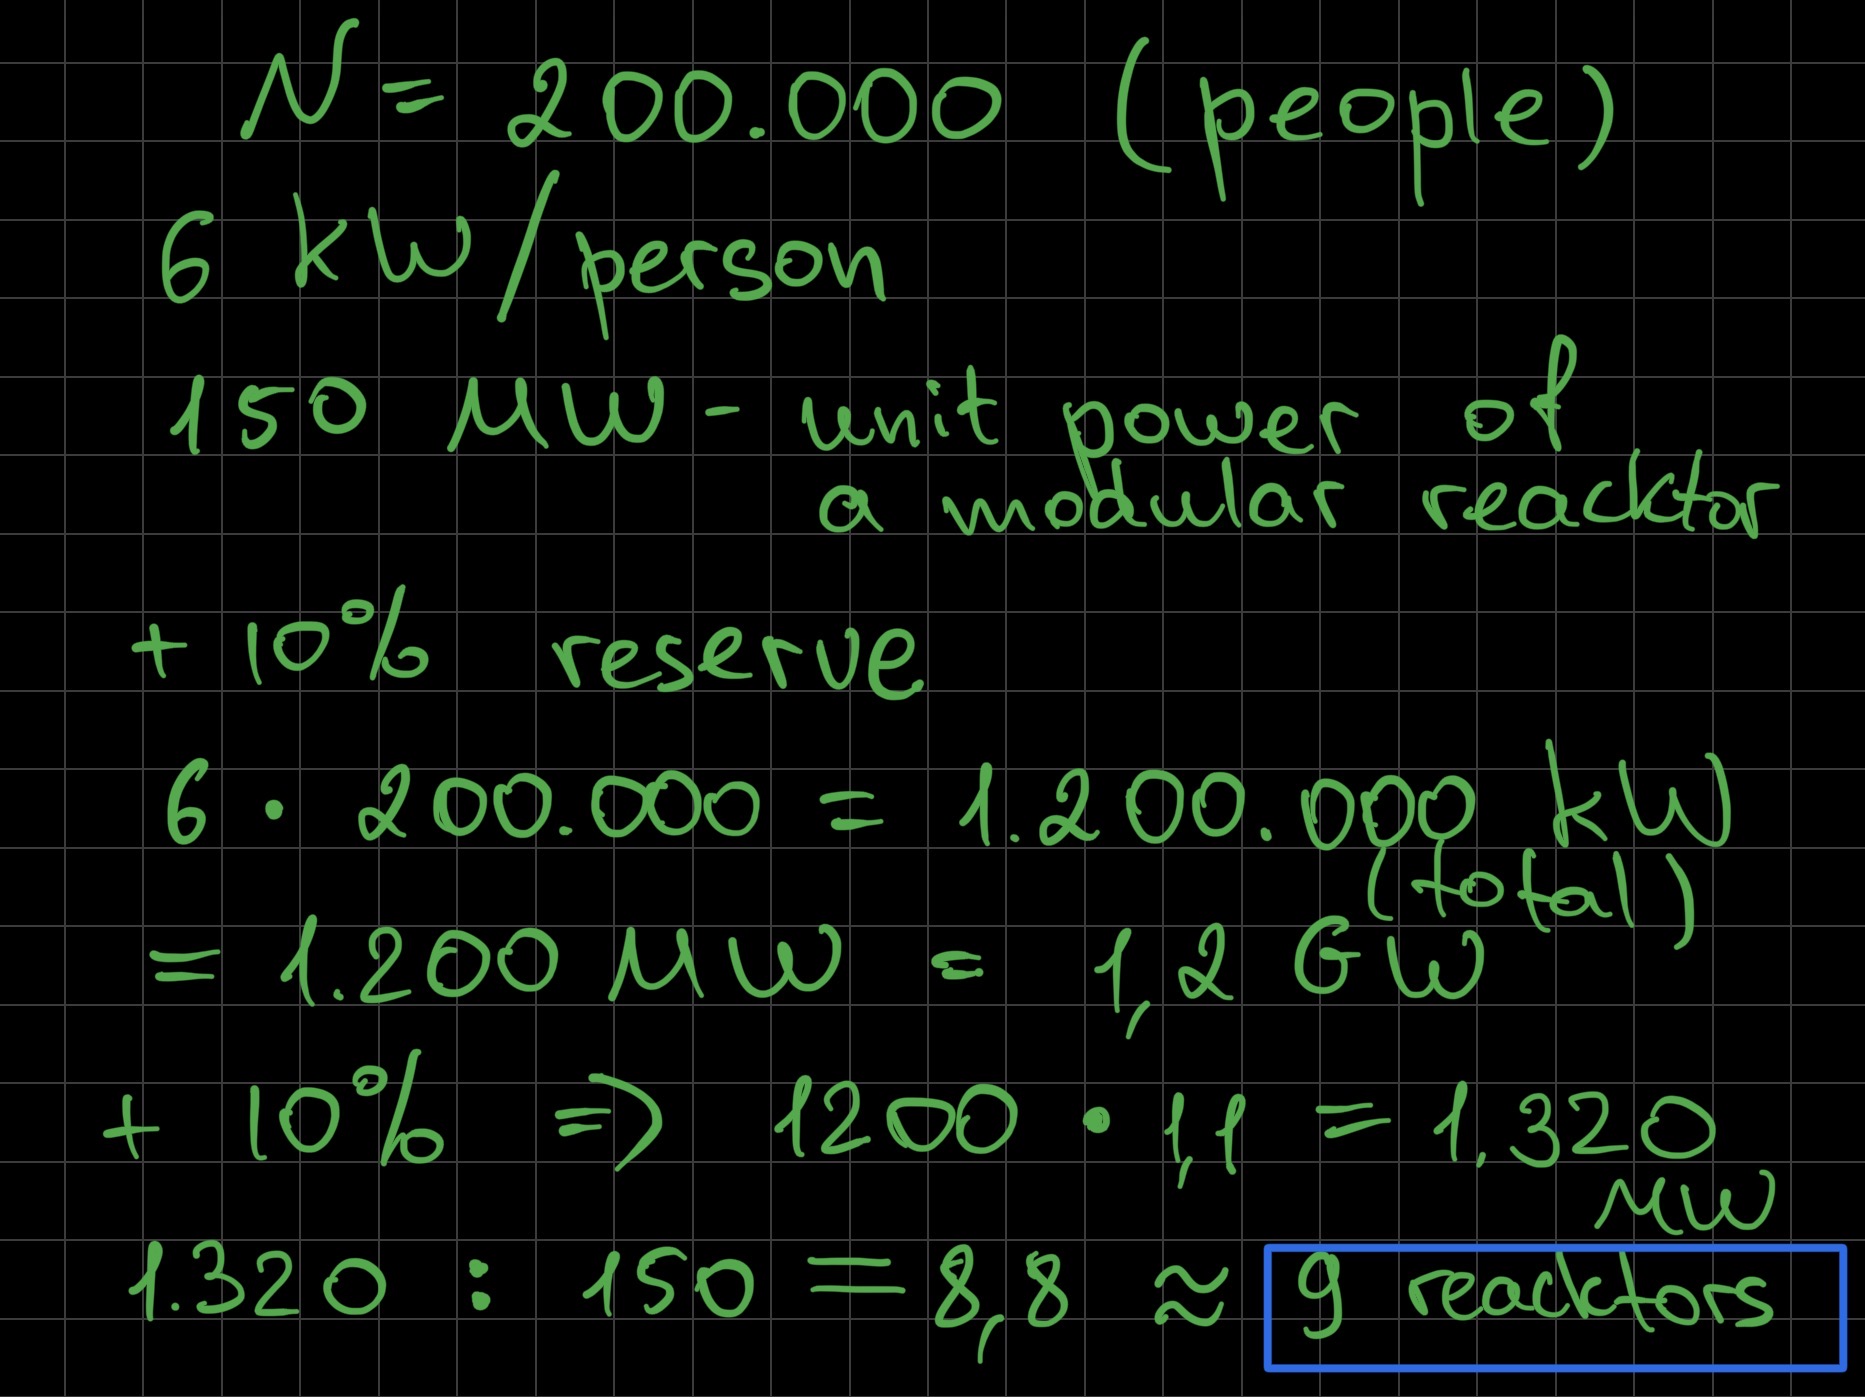 N = 200.000 (people)
6 kW/person
150 MW - unit power of
a modular reacktor
+ 10% reserve
6 · 200.000 = 1.200.000 kW
(total)
= 1.200 MW = 1,2 GW
+ 10% ⇒ 1200 · 1,1 = 1,320
MW
1.320 : 150 = 8,8 ≈ 9 reacktors